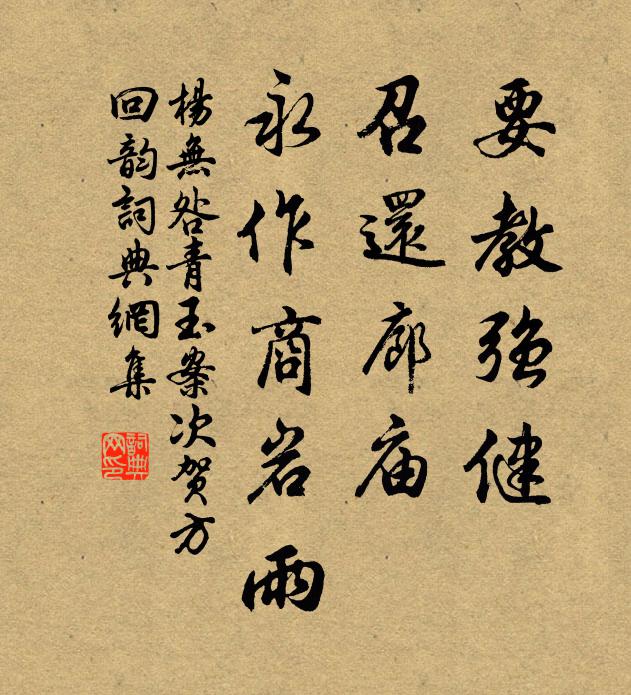 要教強健
召還廊庙
永作商岩雨
楊無咎青玉案次贺方
回韵詞典網集
詞典
网印